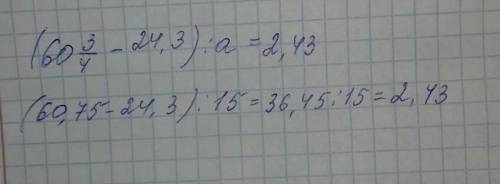 (60 3/4 - 24,3) : a = 2,43
(60,75 - 24,3) : 15 = 36,45 : 15 = 2,43